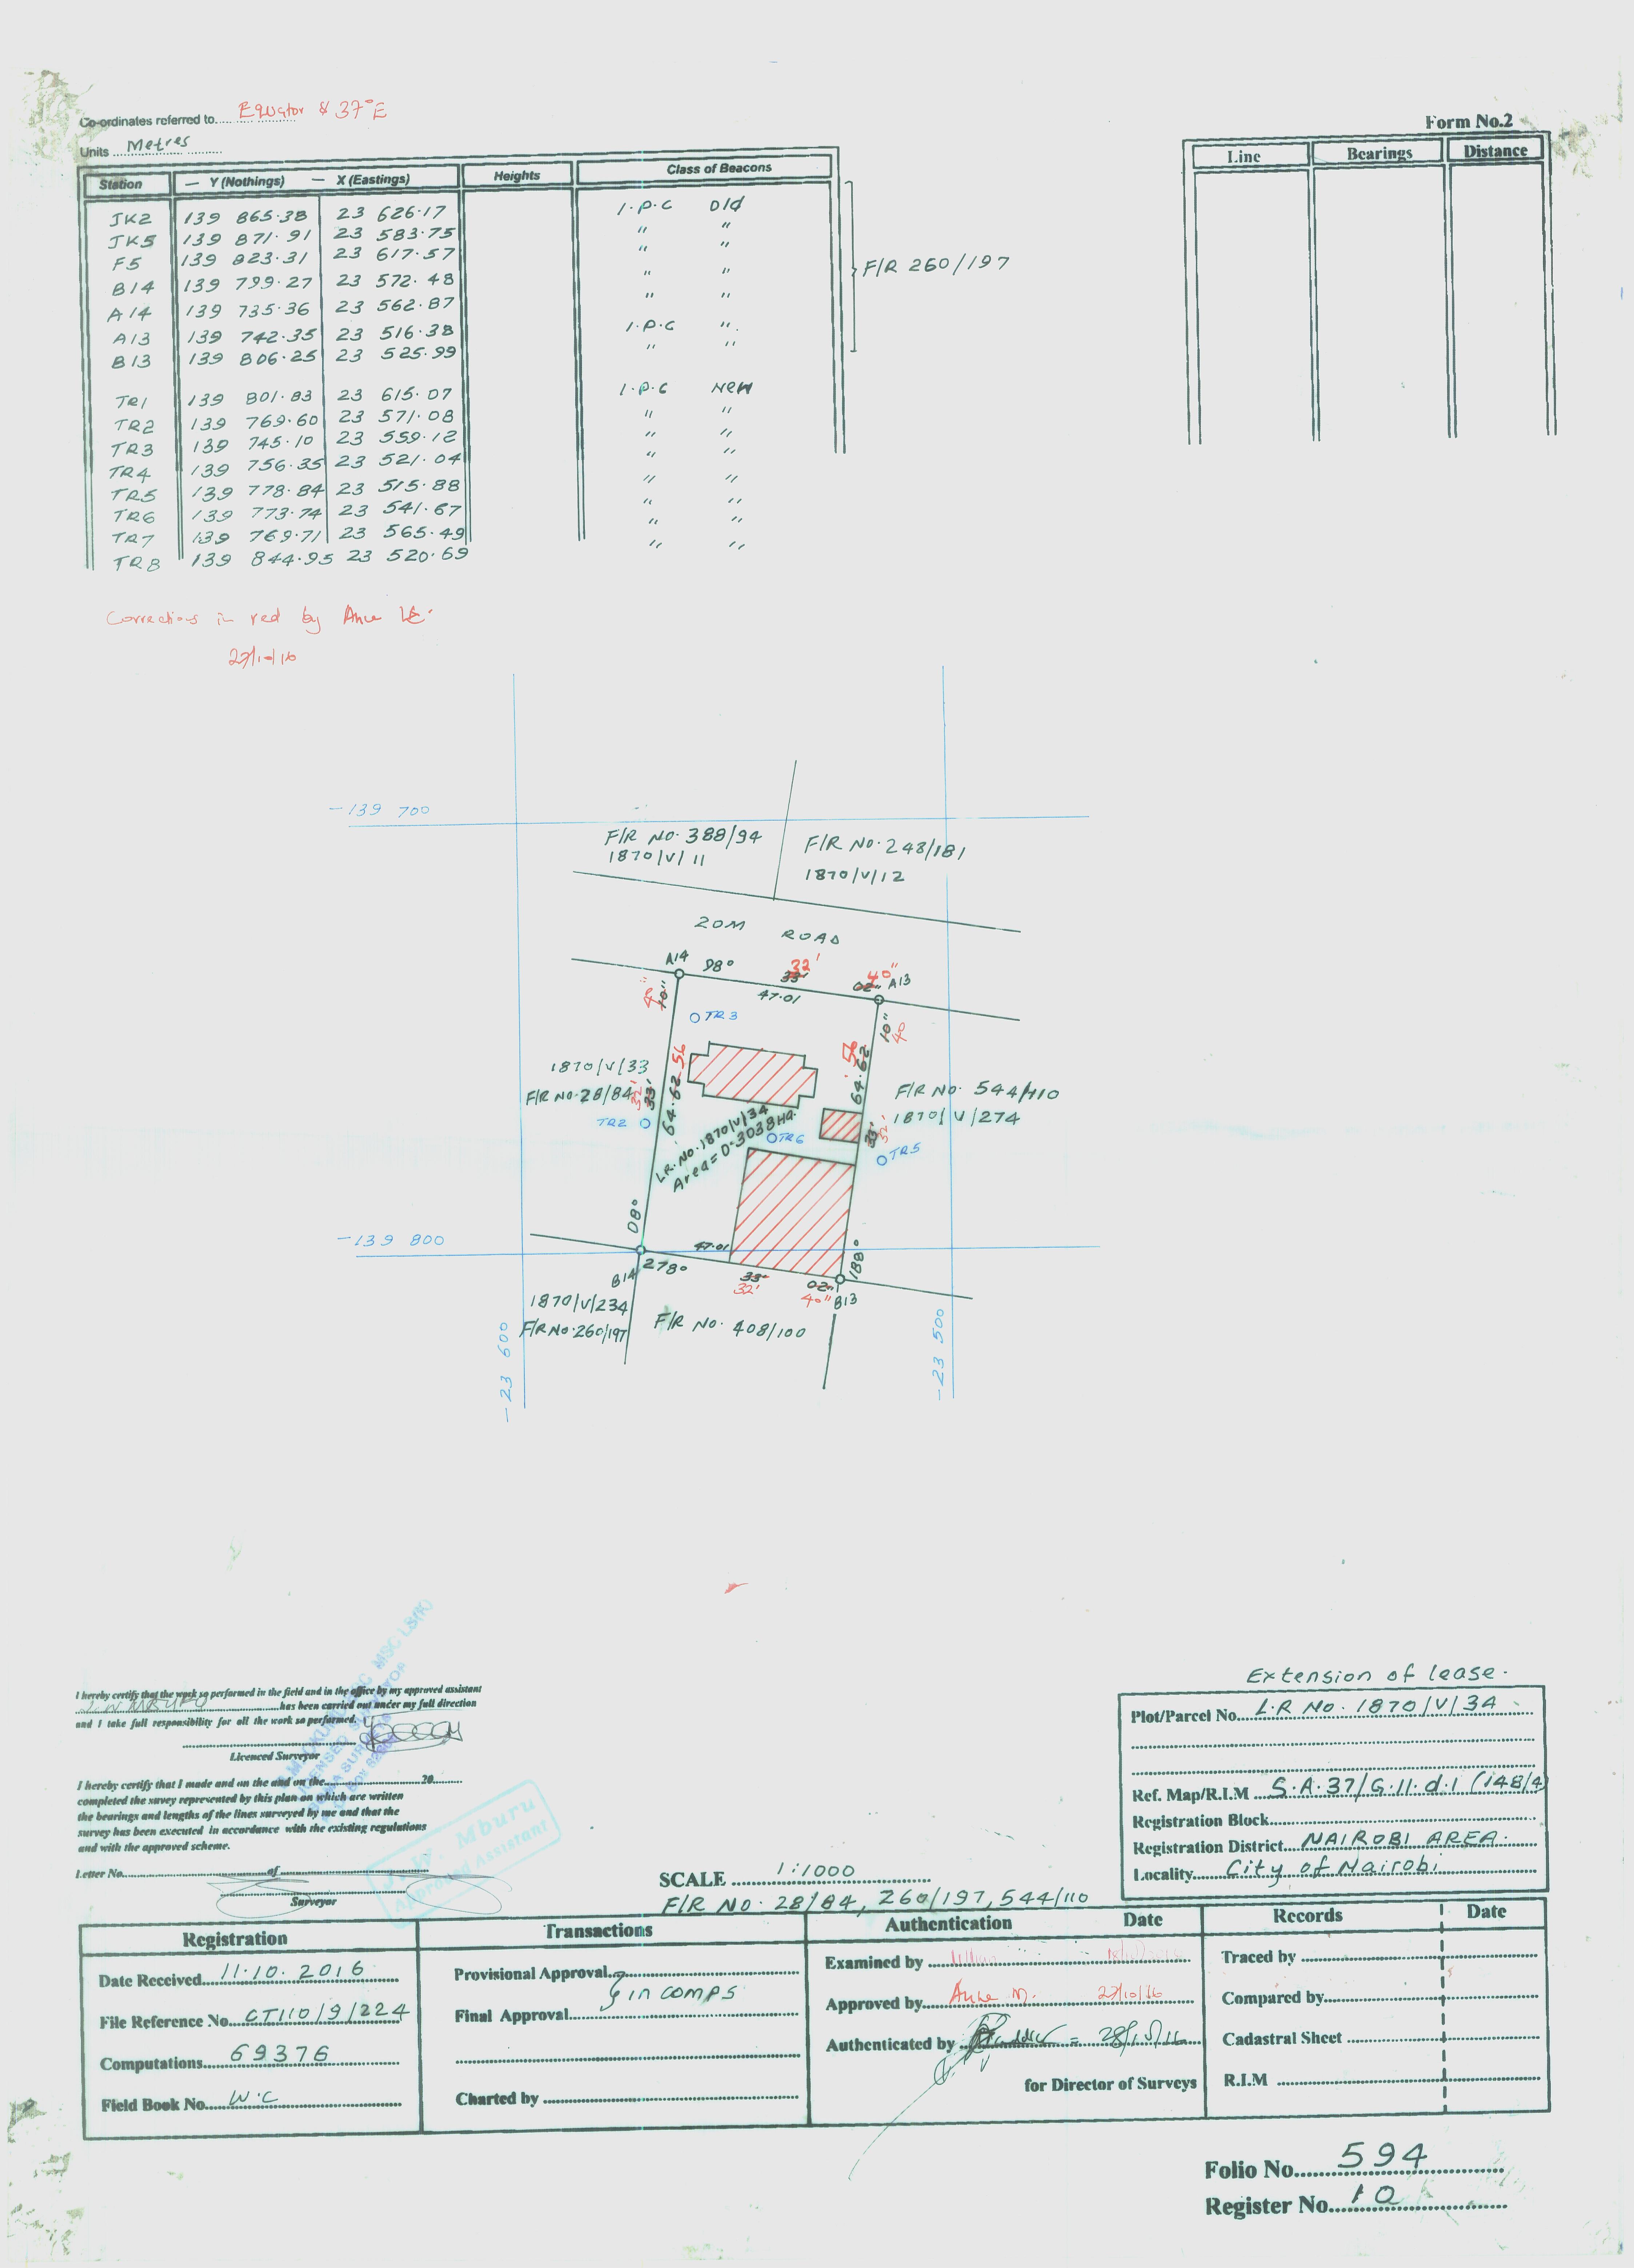 Co-ordinates referred to.... Equator & 37°E
Units ... Metres
Form No.2
Station — Y (Nothings) — X (Eastings) Heights Class of Beacons
Line Bearings Distance
JK2 139 865.38 23 626.17 I.P.C Old
JK5 139 871.91 23 583.75 " "
F5 139 823.31 23 617.57 " "
B14 139 799.27 23 572.48 " "
A14 139 735.36 23 562.87 " "
A13 139 742.35 23 516.38 I.P.C "
B13 139 806.25 23 525.99 " "
F/R 260/197
TR1 139 801.83 23 615.07 I.P.C New
TR2 139 769.60 23 571.08 " "
TR3 139 745.10 23 559.12 " "
TR4 139 756.35 23 521.04 " "
TR5 139 778.84 23 515.88 " "
TR6 139 773.74 23 541.67 " "
TR7 139 769.71 23 565.49 " "
TR8 139 844.95 23 520.69 " "
Corrections in red by Anne
27/10/16
-139 700
F/R NO. 388/94
1870/V/11
F/R NO. 248/181
1870/V/12
20M ROAD
A14 98° 33' 32' 02" 40" A13
47.01
10" 40"
TR3
10" 40
64.62 56
64.62 56
1870/V/33
F/R NO. 28/84
33' 32'
TR2
L.R. NO. 1870/V/34
Area = 0.3038HA.
TR6
F/R NO. 544/110
1870/V/274
33' 32'
TR5
08°
-139 800
47.01
188°
B14 278° 33' 32' 02" 40" B13
1870/V/234
F/R NO. 260/197
F/R NO. 408/100
-23 600
-23 500
Extension of lease.
I hereby certify that the work so performed in the field and in the office by my approved assistant
J.W MBURU has been carried out under my full direction
and I take full responsibility for all the work so performed.
Licenced Surveyor
I hereby certify that I made and on the and on the....20....
completed the suvey represented by this plan on which are written
the bearings and lengths of the lines surveyed by me and that the
survey has been executed in accordance with the existing regulations
and with the approved scheme.
Letter No....of....
Surveyor
J.W. Mburu
Approved Assistant
Plot/Parcel No... L.R NO. 1870/V/34
Ref. Map/R.I.M ... S.A.37/G.11.d.1 (148/4)
Registration Block...
Registration District... NAIROBI AREA.
Locality... City of Nairobi
SCALE ... 1:1000
F/R NO. 28/84, 260/197, 544/110
Registration Transactions Authentication Date Records Date
Date Received... 11.10.2016
File Reference No... CT110/9/224
Computations... 69376
Field Book No... W.C
Provisional Approval...
in comps
Final Approval...
Charted by ...
Examined by ...
Approved by... Anne M. 27/10/16
Authenticated by ... 28/10/16
for Director of Surveys
Traced by ...
Compared by...
Cadastral Sheet ...
R.I.M ...
Folio No... 594
Register No... 10